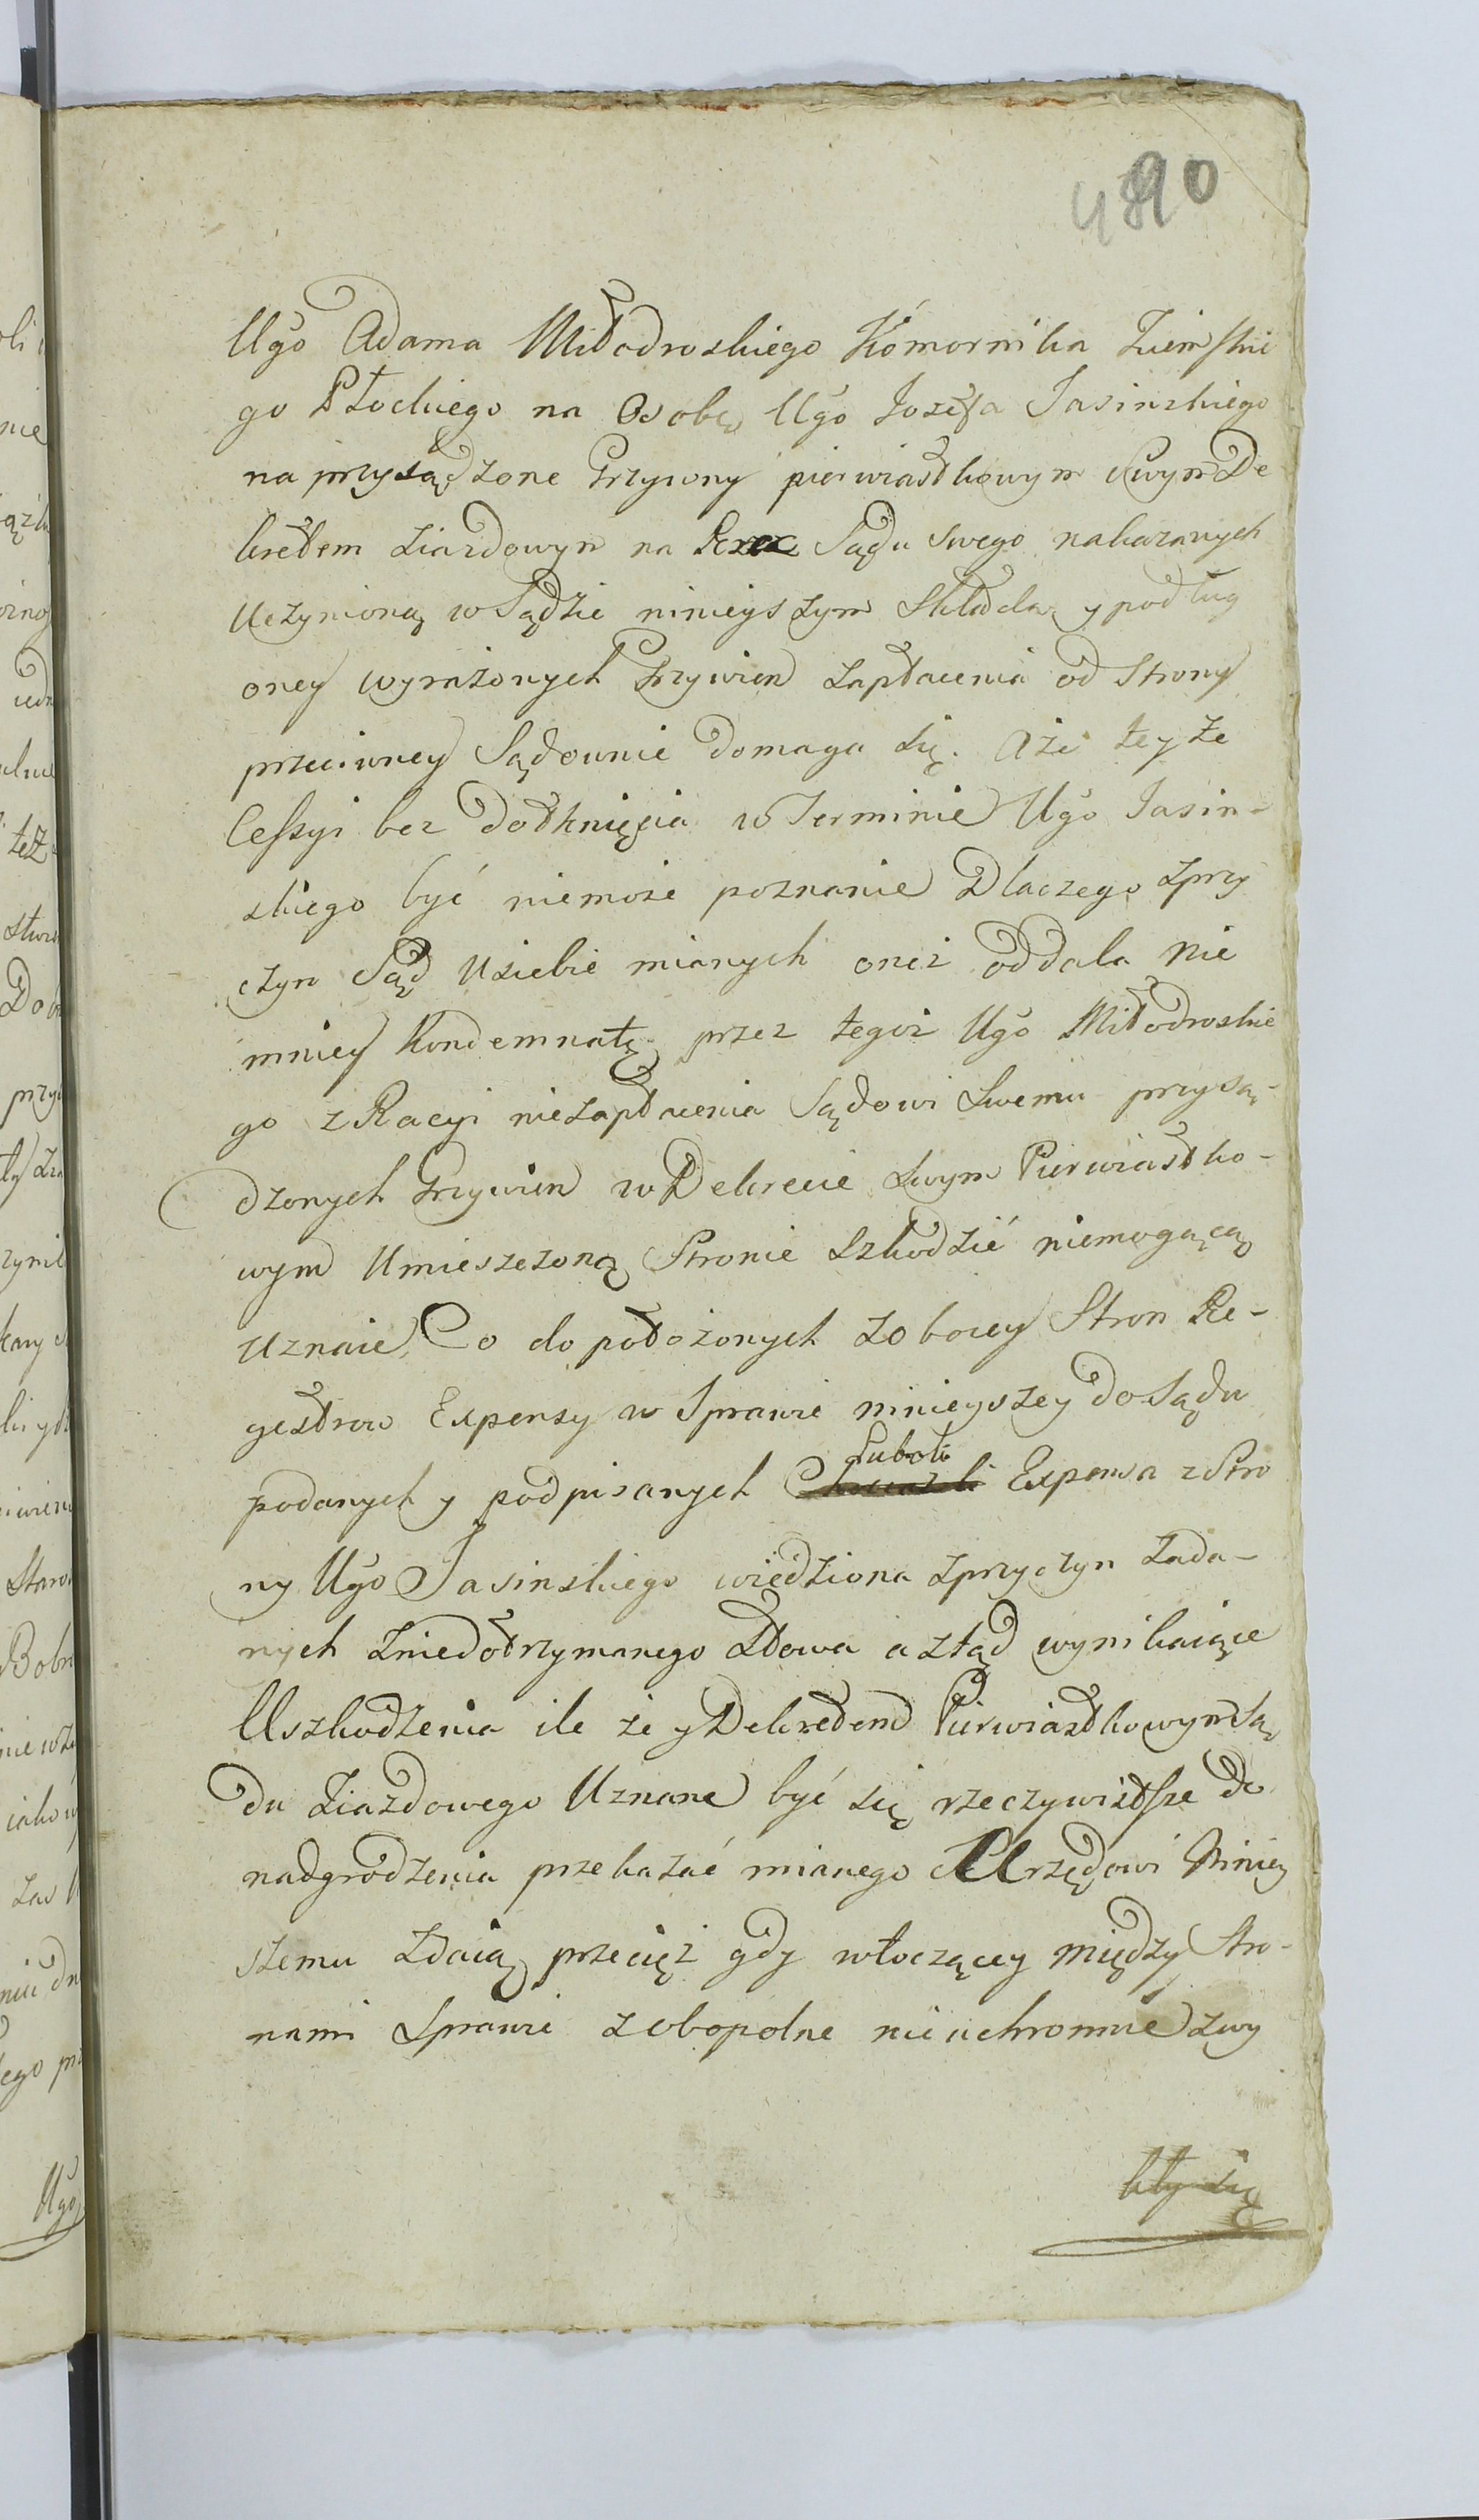 4890
Ugo Adama Młodroskiego Kómornika Ziemskie
go Płockiego na Osobę Ugo Jozefa Jasinskiego
na przysądzone Grzywny pierwiastkowym Swym De
kretem ziazdowym na Sądu swego nakazanych
Uczynioną w Sądzie ninieyszym Składa y podług
oney wyrażonych Grzywien zapłacenia od Strony
przeciwney Sądownie domaga się. Aże teyże
Cessyi bez dotknięcia w Terminie Ugo Jasin-
skiego być niemoże poznanie Dlaczego zprzy
czyn Sąd Usiebie mianych oneż oddala Nie
mniey Kondemnatę przez tegoż Ugo Młodroskie
go z Racyi niezapłacenia Sądowi Swemu przysą-
dzonych Grzywien w Dekrecie Swym Pierwiastko-
wym Umieszczoną Stronie szkodzić niemogącą
Uznaie, Co do położonych zobocy Stron Re-
gestrow Expensy w Sprawie ninieyszey do Sądu
podanych y podpisanych Lubo Expensa z Stro
ny Ugo Jasinskiego wiedziona zprzyczyn zada-
nych zniedotrzymanego Słowa a ztąd wynikaiące
Uszkodzenia ile że y Dekretem Pierwiastkowym Są
du Ziazdowego Uznane być się rzeczywistsze do
nadgrodzenia przekazać mianego Urzędowi Niniey
szemu zdaią przecięż gdy wtoczącey między Stro-
nami Sprawie zobopolne nieuchronnie zwy
kły się